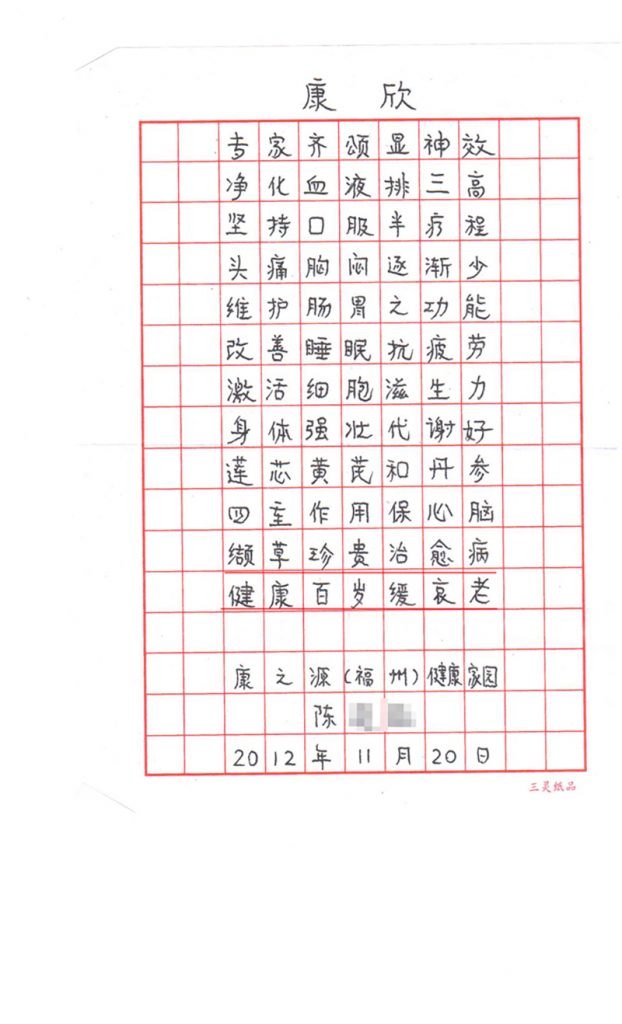 康欣
专家齐颂显神效
净化血液排三高
坚持口服半疗程
头痛胸闷逐渐少
维护肠胃之功能
改善睡眠抗疲劳
激活细胞滋生力
身体强壮代谢好
莲芯黄芪和丹参
四重作用保心脑
缬草珍贵治愈病
健康百岁缓衰老
康之源(福州)健康家园
陈
2012年11月20日
三灵纸品